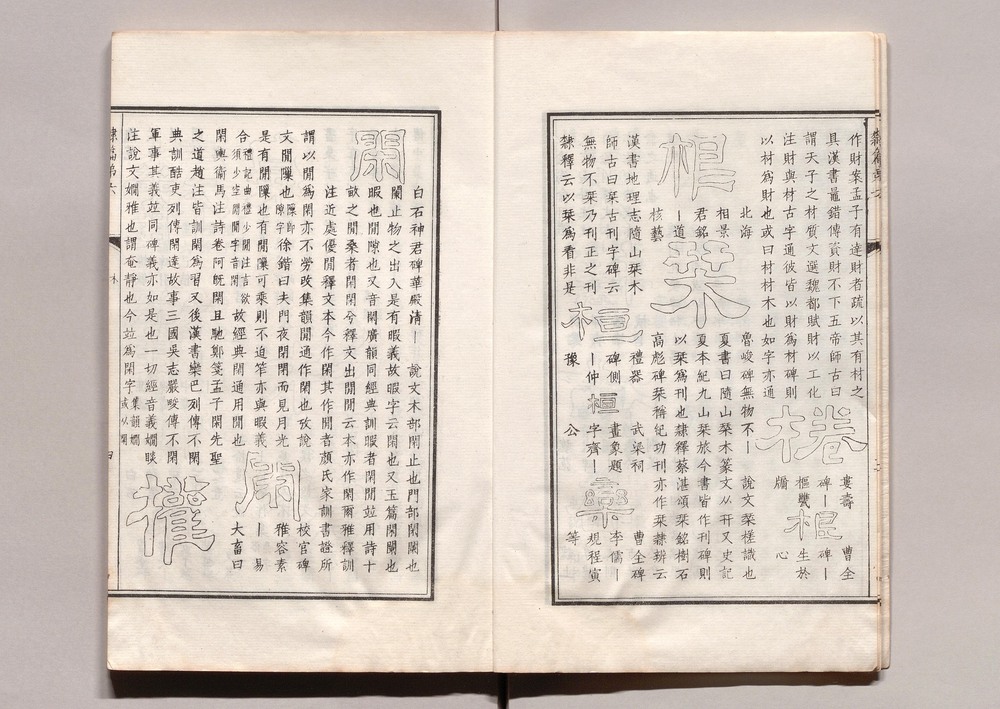 作財案孟子有達財者疏以其有材之
具漢書鼂錯傳資財不下五帝師古曰
謂天子之材質文選魏都賦財以工化
注財與材古字通彼皆以財爲材碑則
以材爲財也或曰材材木也如字亦通
棬
婁壽
碑丨
樞甕
牖
根
曹全
碑丨
生於
心
根
北海
相景
君銘
丨道
核藝
栞
魯峻碑無物不丨 說文栞槎識也
夏書曰隨山栞木篆文从幵又史記
夏本紀九山栞旅今書皆作刊碑則
以栞爲刊也隸釋蔡湛頌栞銘樹石
高彪碑栞稱紀功刊亦作栞隸辨云
漢書地理志隨山栞木
師古曰栞古刊字碑云
無物不栞乃刊正之刊
隸釋云以栞爲看非是
桓
禮器
碑側
丨仲
豫
桓
武梁祠
畫象題
字齊丨
公
欒
曹全碑
李儒丨
規程寅
等
閑
白石神君碑華殿清丨 說文木部閑止也門部閑闌也
闌止物之出入是有暇義故暇字云閑也又玉篇閑闌也
暇也閒隙也又音閑廣韻同經典訓暇者閑閒竝用詩十
畝之閒桑者閑閑兮釋文出閒閒云本亦作閑爾雅釋訓
注近處優閒釋文本今作閑其作閒者顏氏家訓書證所
謂以閒爲閑亦不勞改集韻閒通作閑閒也攷說
文閒隟也隟卽隙字徐鍇曰夫門夜閉閉而見月光
是有閒隟也有閒隟可乘則不迫笮亦與暇義
合禮記曲禮少閒注言欲須少空閒閒字音閑故經典閑通用閒也
閑
校官碑
丨雅容素
易
大畜曰
閑輿衞馬注詩卷阿旣閑且馳鄭箋孟子閑先聖
之道趙注皆訓閑爲習又後漢書欒巴列傳不閑
典訓酷吏列傳閑達故事三國吳志嚴畯傳不閑
軍事其義竝同碑義亦如是也一切經音義嫺睒
注說文嫺雅也謂奄靜也今竝爲閑字集韻嫺或以閑
權
隸篇第六
木
四